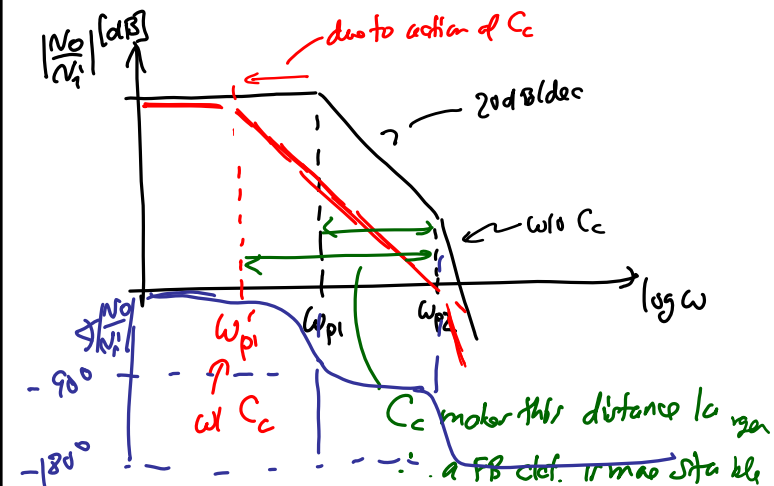 |No/Ni| [dB]
due to action of Cc
20dB/dec
w/o Cc
log ω
∠|No/Ni|
ω'p1
ωp1
ωp2
-90°
w/ Cc
Cc makes this distance larger
∴ a FB ckt. is more stable
-180°